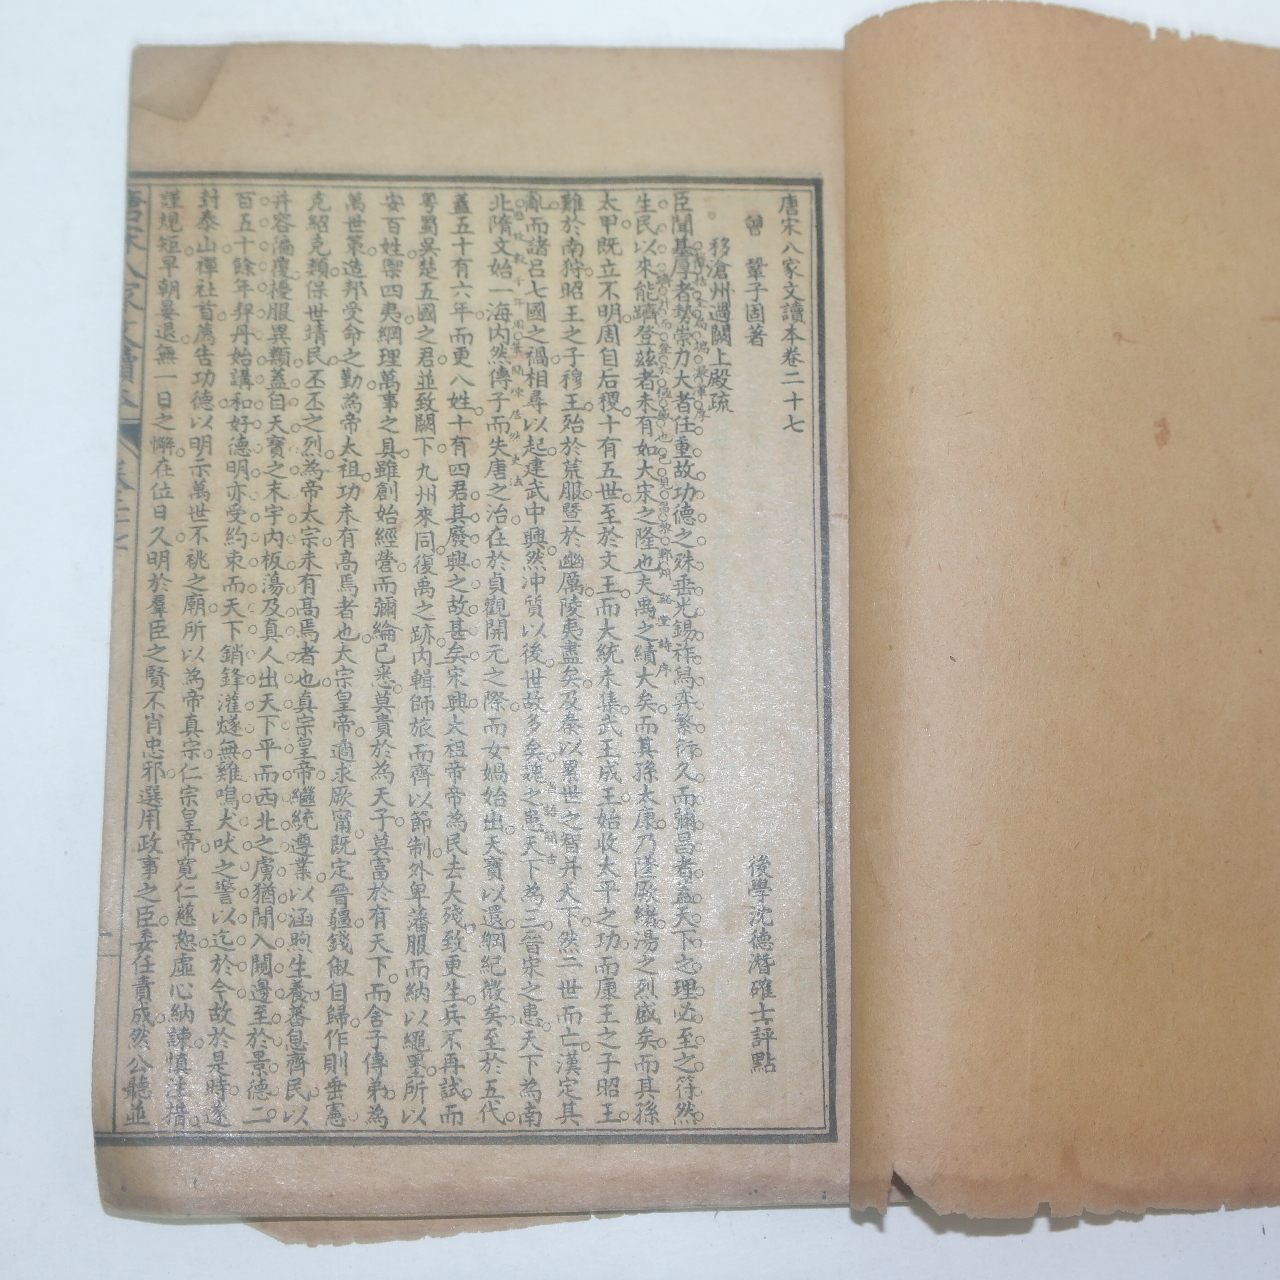 唐宋八家文讀本卷二十七
曾　鞏子固著　後學沈德潛確士評點
移滄州過闕上殿疏
臣聞基厚者勢崇力大者任重故功德之殊垂光錫祚舄奕繁衍久而彌昌者蓋天下之理必至之符然
生民以來能躋登茲者未有如大宋之隆也夫禹之績大矣而其孫太康乃墜厥緒湯之烈盛矣而其孫
太甲既立不明周自后稷十有五世至於文王而大統未集武王成王始收太平之功而康王之子昭王
難於南狩昭王之子穆王殆於荒服暨於幽厲陵夷盡矣及秦以累世之智并天下然二世而亡漢定其
亂而諸呂七國之禍相尋以起建武中興然沖質以後世故多矣魏之患天下為三晉宋之患天下為南
北隋文始一海內然傳子而失唐之治在於貞觀開元之際而女媧始出天寶以還綱紀微矣至於五代
蓋五十有六年而更八姓十有四君其廢興之故甚矣宋興太祖帝帝為民去大殘致更生兵不再試而
粵蜀吳楚五國之君並致闕下九州來同復禹之跡內輯師旅而齊以節制外卑藩服而納以繩墨所以
安百姓禦四夷綱理萬事之具雖創始經營而彌綸已悉莫貴於為天子莫富於有天下而舍子傳弟為
萬世策造邦受命之勤為帝太祖功未有高焉者也太宗皇帝遹求厥寧既定晉疆錢俶自歸作則垂憲
克紹克類保世靖民丕丕之烈為帝太宗未有高焉者也真宗皇帝繼統尊業以涵煦生養蕃息齊民以
并容遍覆擾服異類蓋自天寶之末宇內板蕩及真人出天下平而西北之虜猶間入闚邊至於景德二
百五十餘年契丹始講和好德明亦受約束而天下銷鋒灌燧無雞鳴犬吠之警以迄於今故於是時遂
封泰山禪社首薦告功德以明示萬世不祧之廟所以為帝真宗仁宗皇帝寬仁慈恕虛心納諫慎注措
謹規矩早朝晏退無一日之懈在位日久明於羣臣之賢不肖忠邪選用政事之臣委任責成然公聽並
唐宋八家文讀本　卷二十七